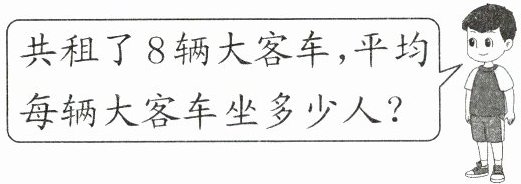 共租了8辆大客车,平均
每辆大客车坐多少人?